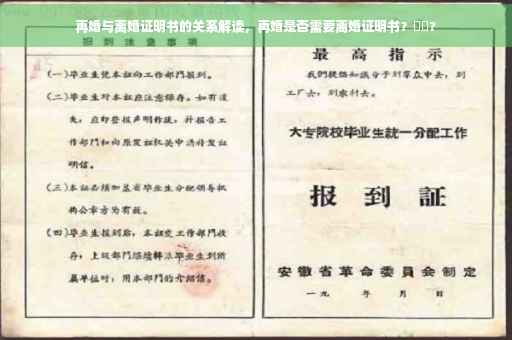 再婚与离婚证明书的关系解读，再婚是否需要离婚证明书？ ？
报到注意事项
(一)毕业生凭本证向工作部门报到。
(二)毕业生对本证应注意保存。如有遗
失，应即登报声明作废，并报告工
作部门和向原发证机关申请补发证
明信。
(三)本证必须加盖省毕业生分配领导机
构公章方为有效。
(四)毕业生报到后，本证交工作部门收
存，上级部门继续转派毕业生到所
属单位时，用本部门的介绍信。
最高指示
我们提倡知识分子到群众中去，到
工厂去，到农村去。
大专院校毕业生统一分配工作
报到证
安徽省革命委员会制定
一九 年 月 日